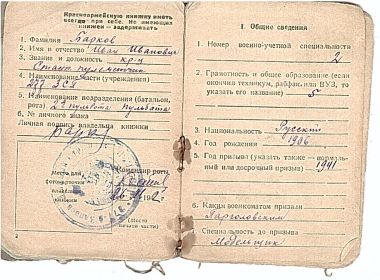 Красноармейскую книжку иметь
всегда при себе. Не имеющих
книжек — задерживать
1. Фамилия Барков
2. Имя и отчество Иван Иванович
3. Звание и должность кр-ц
Станк. пулеметчик
4. Наименование части (учреждения)
277 ЗСП
5. Наименование подразделения (батальон,
рота) 2я пульрота пульбата
6. № личного знака
Личная подпись владельца книжки
Место для
фотокарточки
владельца
книжки
Командир роты
194 2 г.
(Место
печати части)
2
I. Общие сведения
1. Номер военно-учетной специальности
2
2. Грамотность и общее образование (если
окончил техникум, рабфак или ВУЗ, то
указать его название) 5
3. Национальность Русский
4. Год рождения 1906
5. Год призыва (указать также — нормаль-
ный или досрочный призыв) 1941
6. Каким военкоматом призван
Парголовским
Специальность до призыва
Модельщик